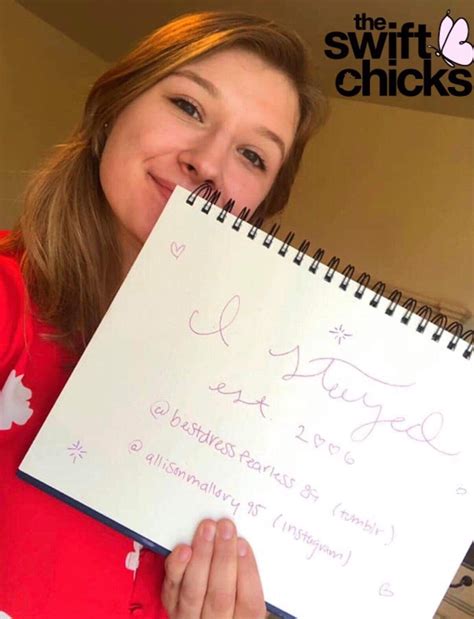 the
swift
chicks
I stayed
est. 2♡♡6
@bestdressfearless89 (tumblr)
@allisonmallory95 (instagram)